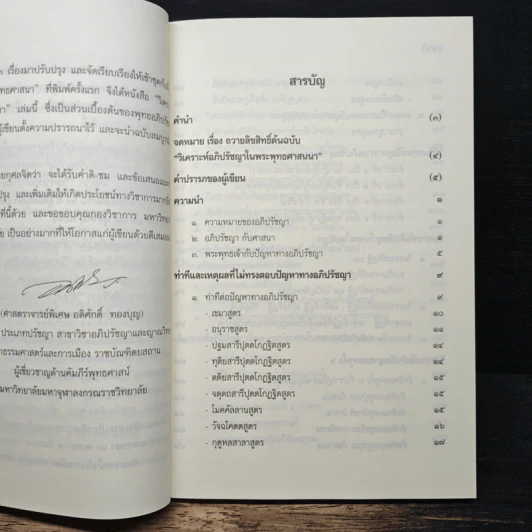 เรื่องมาปรับปรุง และจัดเรียบเรียงให้เข้าชุดกัน
ทธศาสนา" ที่พิมพ์ครั้งแรก จึงได้หนังสือ "วิเคร
า" เล่มนี้ ซึ่งเป็นส่วนเบื้องต้นของพุทธอภิปรัชญ
ผู้เขียนตั้งความปรารถนาไว้ และจะนำฉบับสมบูรณ์
ยกุศลจิตว่า จะได้รับคำติ-ชม และข้อเสนอแนะ
ปรุง และเพิ่มเติมให้เกิดประโยชน์ทางวิชาการมาก
ที่นี้ด้วย และขอขอบคุณกองวิชาการ มหาวิทยาลัย
ย เป็นอย่างมากที่ให้โอกาสแก่ผู้เขียนด้วยดีเสมอ
(ศาสตราจารย์พิเศษ อดิศักดิ์ ทองบุญ)
ประเภทปรัชญา สาขาวิชาอภิปรัชญาและญาณวิท
กธรรมศาสตร์และการเมือง ราชบัณฑิตยสถาน
ผู้เชี่ยวชาญด้านคัมภีร์พุทธศาสน์
มหาวิทยาลัยมหาจุฬาลงกรณราชวิทยาลัย
สารบัญ
คำนำ (๓)
จดหมาย เรื่อง ถวายลิขสิทธิ์ต้นฉบับ
"วิเคราะห์อภิปรัชญาในพระพุทธศาสนา" (๔)
คำปรารภของผู้เขียน (๕)
ความนำ ๑
๑. ความหมายของอภิปรัชญา ๑
๒. อภิปรัชญา กับศาสนา ๓
๓. พระพุทธเจ้ากับปัญหาทางอภิปรัชญา ๕
ท่าทีและเหตุผลที่ไม่ทรงตอบปัญหาทางอภิปรัชญา ๙
๑. ท่าทีต่อปัญหาทางอภิปรัชญา ๙
- เขมาสูตร ๑๐
- อนุราธสูตร ๑๑
- ปฐมสารีปุตตโกฏฐิตสูตร ๑๔
- ทุติยสารีปุตตโกฏฐิตสูตร ๑๔
- ตติยสารีปุตตโกฏฐิตสูตร ๑๕
- จตุตถสารีปุตตโกฏฐิตสูตร ๑๕
- โมคคัลลานสูตร ๑๕
- วัจฉโคตตสูตร ๑๖
- กุตูหลสาลาสูตร ๑๗